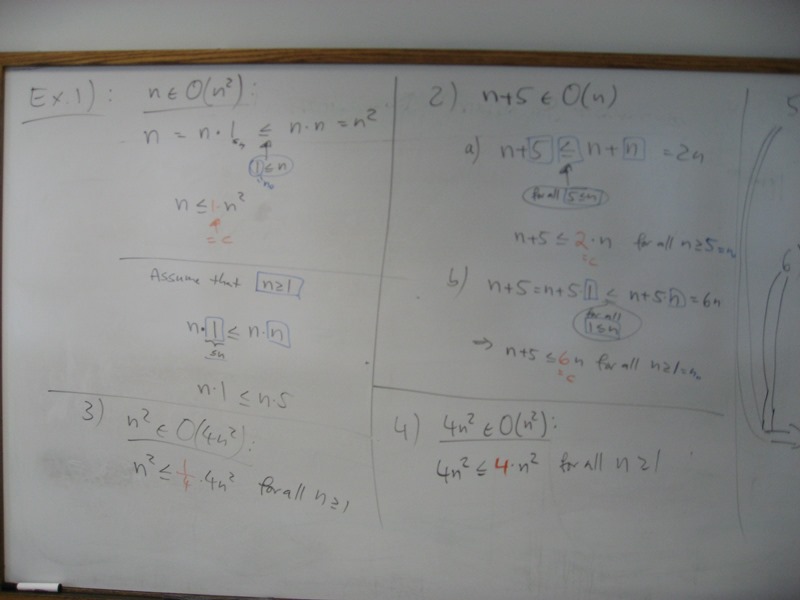 Ex.1) : n ∈ O(n²) :
n = n·1 ≤ n·n = n²
≤n
1 ≤ n
=n₀
n ≤ 1·n²
= c
Assume that n≥1
n·1 ≤ n·n
≤n
n·1 ≤ n·5
2) n+5 ∈ O(n)
a) n+5 ≤ n+n = 2n
for all 5≤n
n+5 ≤ 2·n for all n≥5=n₀
=c
b) n+5=n+5·1 ≤ n+5·n=6n
for all
1≤n
⇒ n+5 ≤ 6n for all n≥1=n₀
=c
3) n² ∈ O(4n²):
n² ≤ 1/4 · 4n² for all n≥1
4) 4n² ∈ O(n²):
4n² ≤ 4·n² for all n≥1
5
6